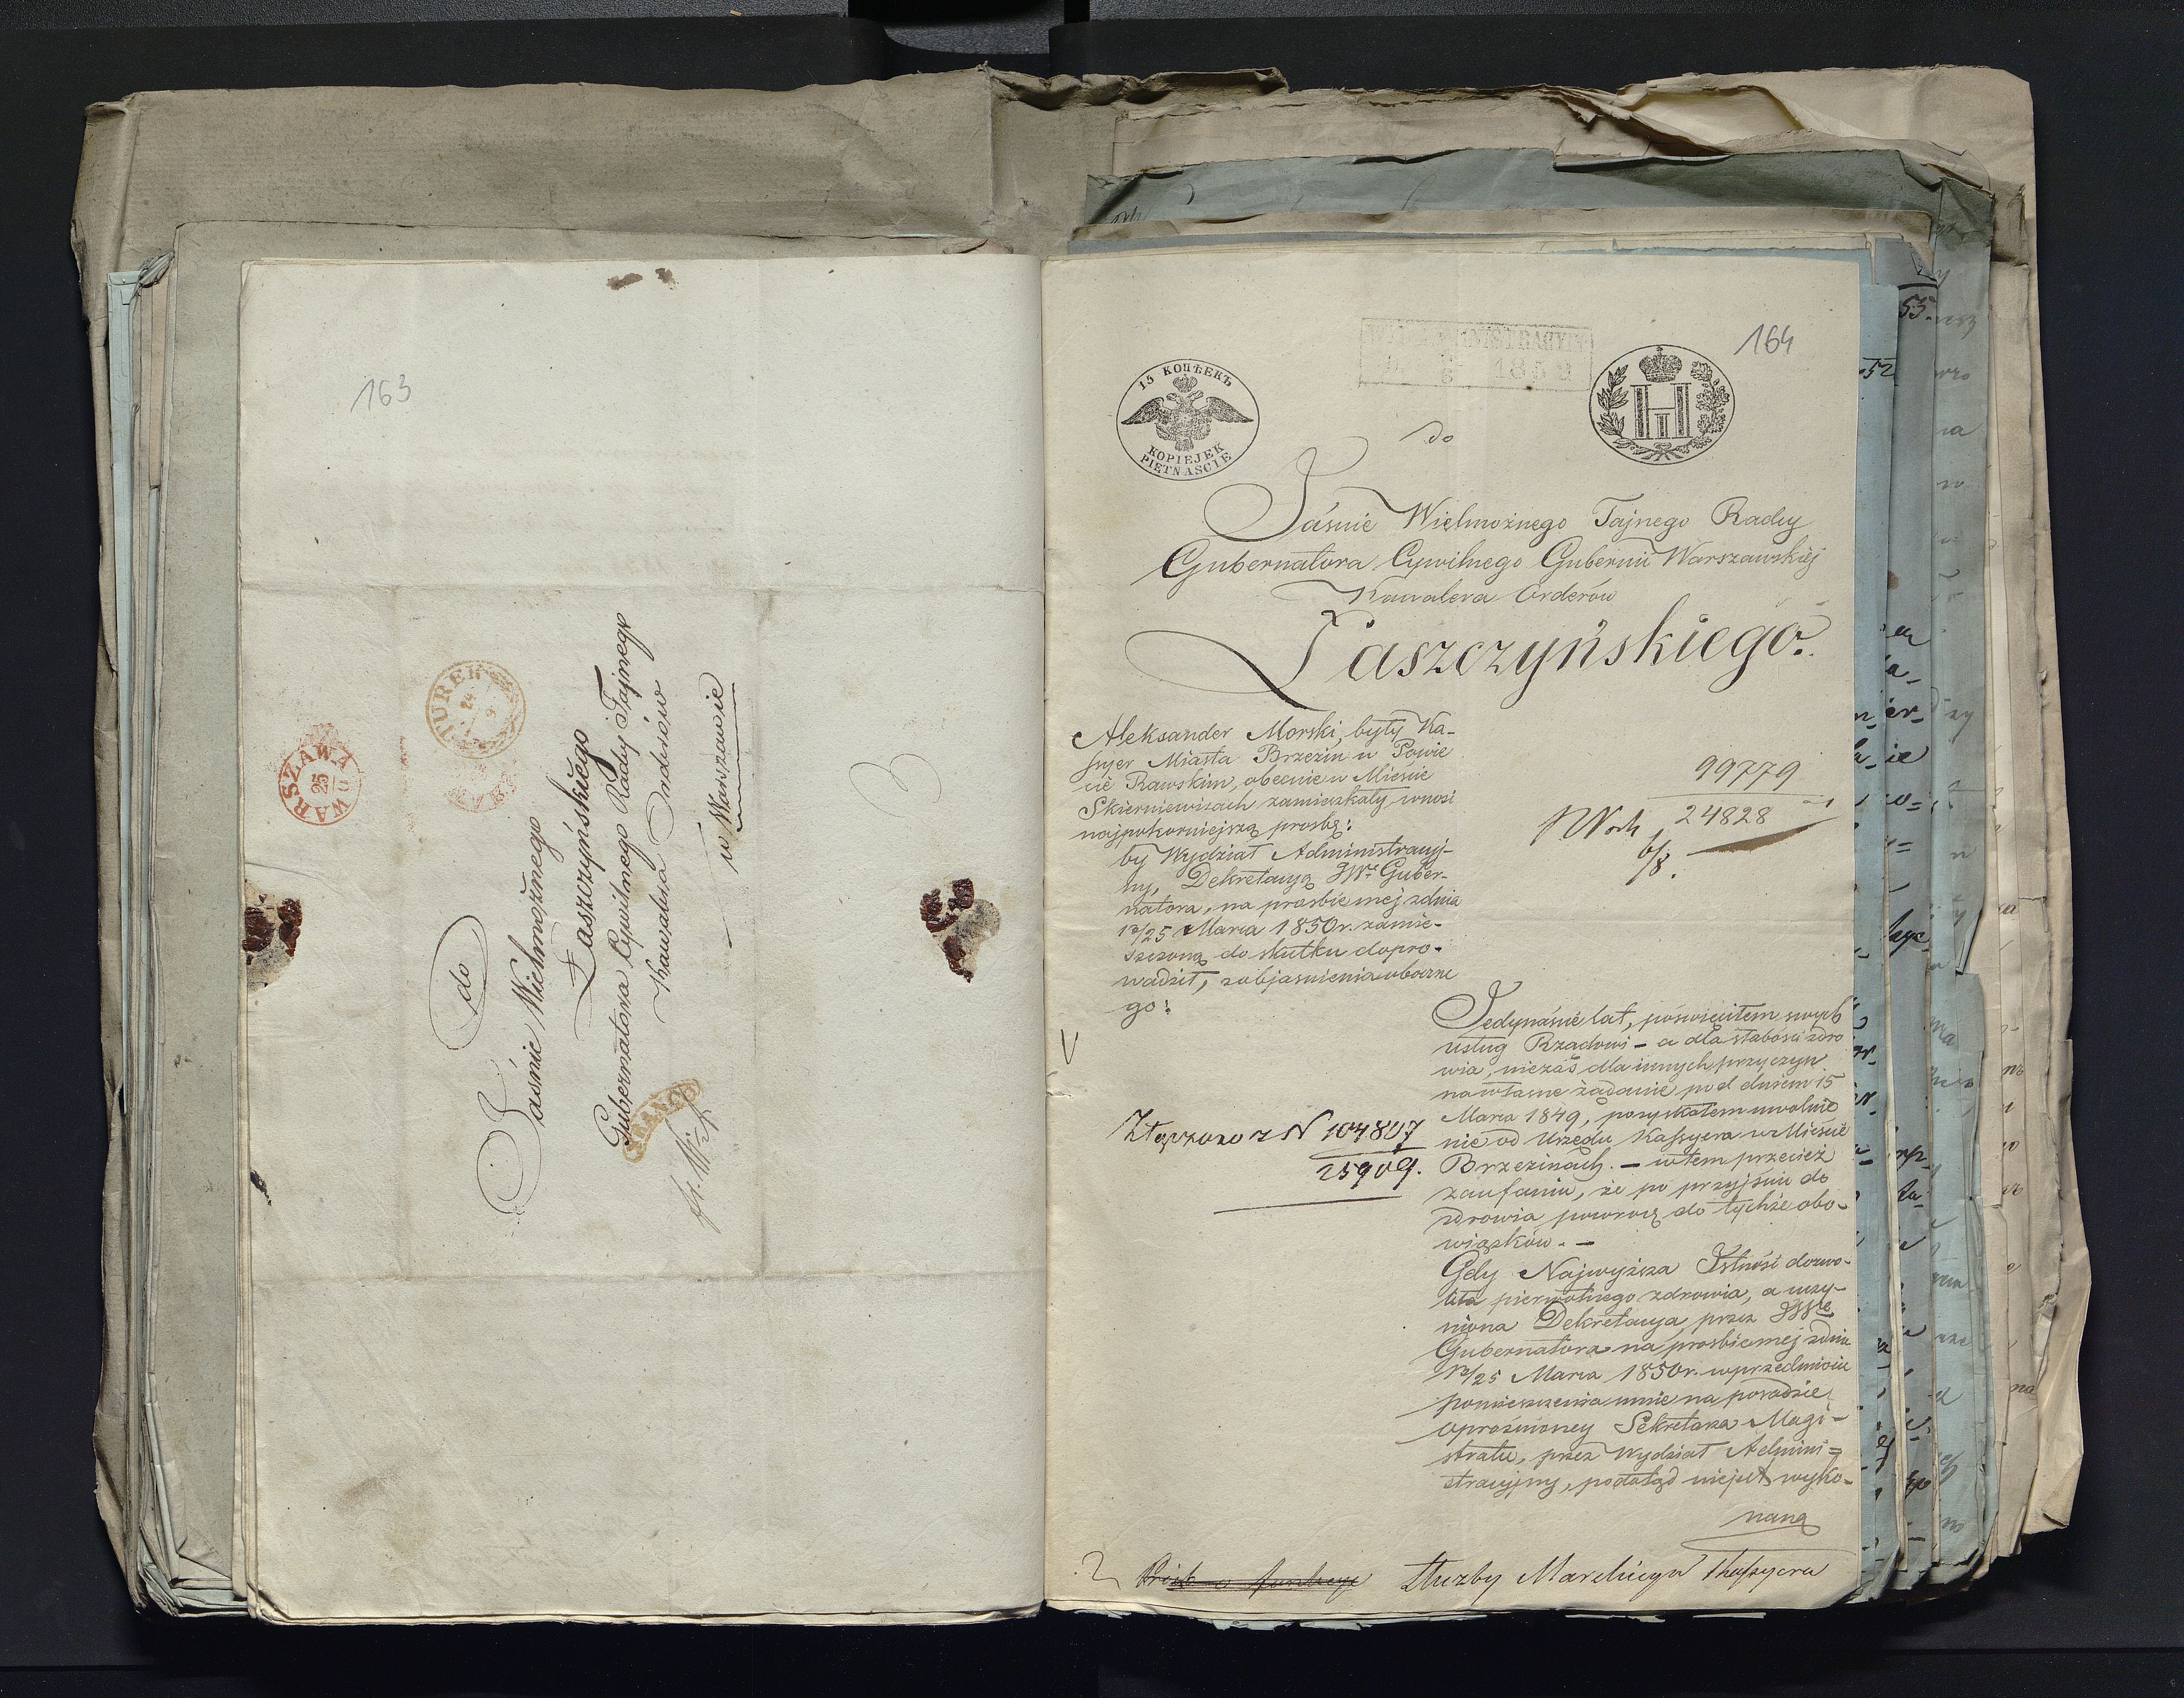 163
WARSZAWA
25
TUREK
24
9
do
Jaśnie Wielmożnego
Łaszczyńskiego
Gubernatora Cywilnego Rady Tajnego
Kawalera Orderów
w Warszawie
FRANCO
164
1859
15 КОПѢЕКЪ
KOPIEJEK
PIĘTNAŚCIE
do
Jaśnie Wielmożnego Tajnego Radcy
Gubernatora Cywilnego Gubernii Warszawskiéj
Kawalera Orderów
Łaszczyńskiego.
Aleksander Morski, były Ka-
ssyer Miasta Brzezin w Powie
cie Rawskim, obecnie w Mieście
Skierniewicach zamieszkały, wnosi
najpokorniejszą prośbę:
by Wydział Administracyj-
ny, Dekretacyą JWo Guber-
natora, na prośbie méj z dnia
13/25 Marca 1850r. zamie-
szczoną do skutku dopro-
wadził, z objaśnienia oboczne
go:
99779
24828
6/8.
Jedynaście lat, poświęciłem swych
usług Rządowi - a dla słabości zdro
wia, niezaś dla innych przyczyn
na własne żądanie pod dniem 15
Marca 1849, pozyskałem uwolnie
nie od Urzędu Kassyera w Mieście
Brzezinach. - w tem przecież
zaufaniu, że po przyjściu do
zdrowia powrócę do tychże obo-
wiązków. -
Gdy Najwyższa Istność dozwo-
liła pierwotnego zdrowia, a uczy-
niona Dekretacya przez
Gubernatora na prośbie méj z dnia
13/25 Marca 1850r. w przedmiocie
pomieszczenia mnie na posadzie
opróżnionéj Sekretarza Magi-
stratu, przez Wydział Admini=
stracyjny, podotąd niejest wyko-
naną
Złączono z N 104807
25909.
Służby Kassyera